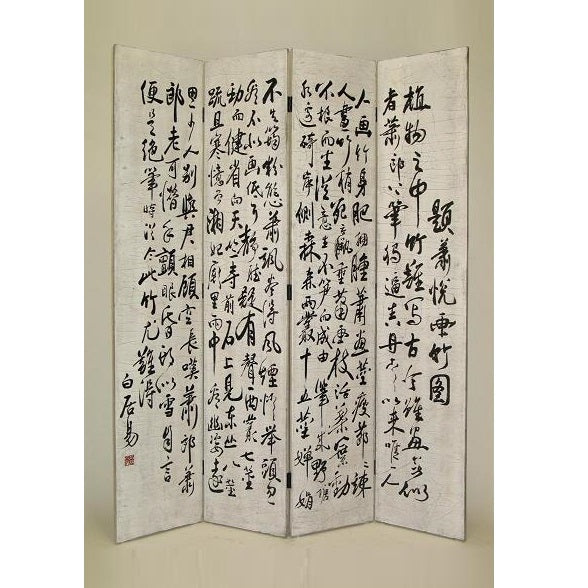 題蕭悦画竹图
植物之中竹難写古今雖画無似
者蕭郎下筆獨逼真丹青以来唯一人
人画竹身肥擁腫蕭画莖瘦節節竦
人畫竹梢死羸垂蕭画枝活葉葉動
不根而生從意生不笋而成由筆成野塘
水邊碕岸側森森两叢十五莖嬋娟
不失筠粉態蕭颯尽得風煙情舉頭忽
看不似画低耳静聽疑有聲西叢七莖
勁而健省向天竺寺前石上見东丛八莖
疏且寒憶曾湘妃廟里雨中看幽姿遠
思少人别與君相顧空長嘆蕭郎蕭
郎老可惜手顫眼昏頭似雪自言
便是绝筆時於今此竹尤難得
白居易